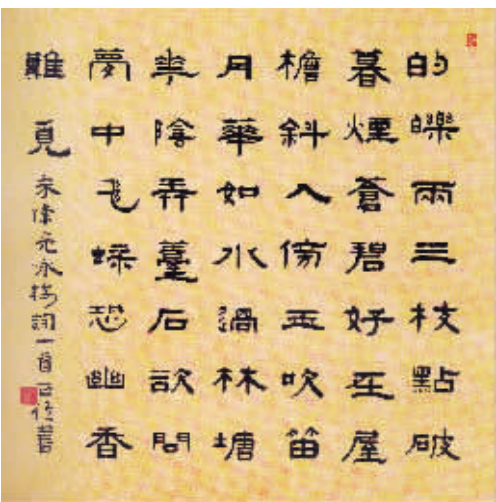 的皪兩三枝點破
暮煙蒼碧好在屋
檐斜入傍玉吹笛
月華如水過林塘
花陰弄薹石欲問
夢中飛蝶恐幽香
難覓
宋陳亮詠梅詞一首 書